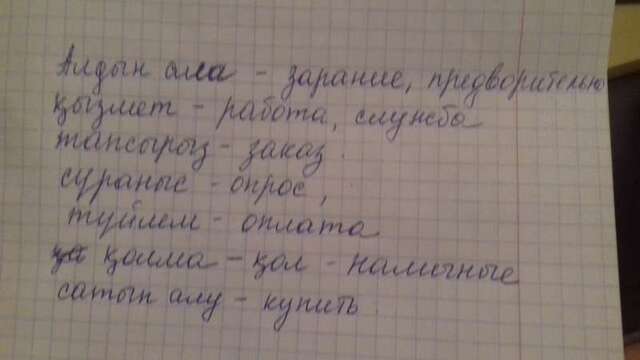 Алдын ала - зарание, предворительно
қызмет - работа, служба
тапсырыз - заказ
сураныс - опрос,
туйлем - оплата
қолма - қол - наличные
сатып алу - купить